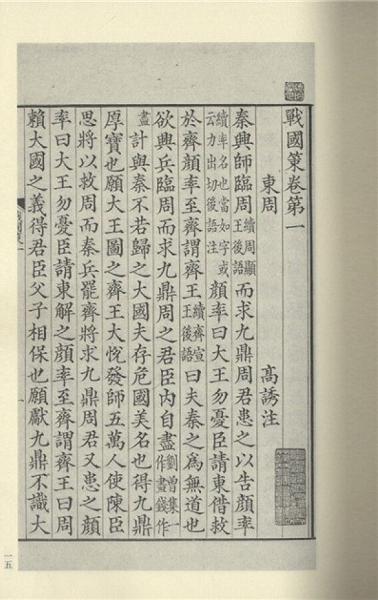 戰國策卷第一
東周 高誘注
秦興師臨周續周顯王後語而求九鼎周君患之以告顏率
續率名也當如字或云力出切後語注顏率曰大王勿憂臣請東借救
於齊顏率至齊謂齊王續齊宣王後語曰夫秦之爲無道也
欲興兵臨周而求九鼎周之君臣內自盡劉曾集一作畫錢作
盡計與秦不若歸之大國夫存危國美名也得九鼎
厚寶也願大王圖之齊王大悅發師五萬人使陳臣
思將以救周而秦兵罷齊將求九鼎周君又患之顏
率曰大王勿憂臣請東解之顏率至齊謂齊王曰周
賴大國之義得君臣父子相保也願獻九鼎不識大
一五